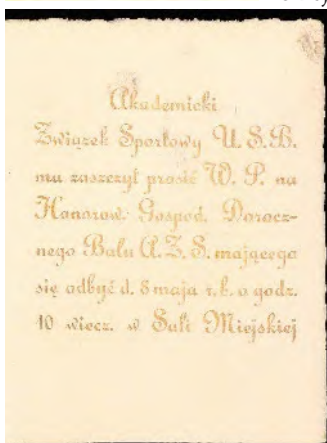 Akademicki
Związek Sportowy U. S. B.
ma zaszczyt prosić W. P. na
Honorow. Gospod. Dorocz-
nego Balu A. Z. S. mającego
się odbyć d. 8 maja r. b. o godz.
10 wiecz. w Sali Miejskiej